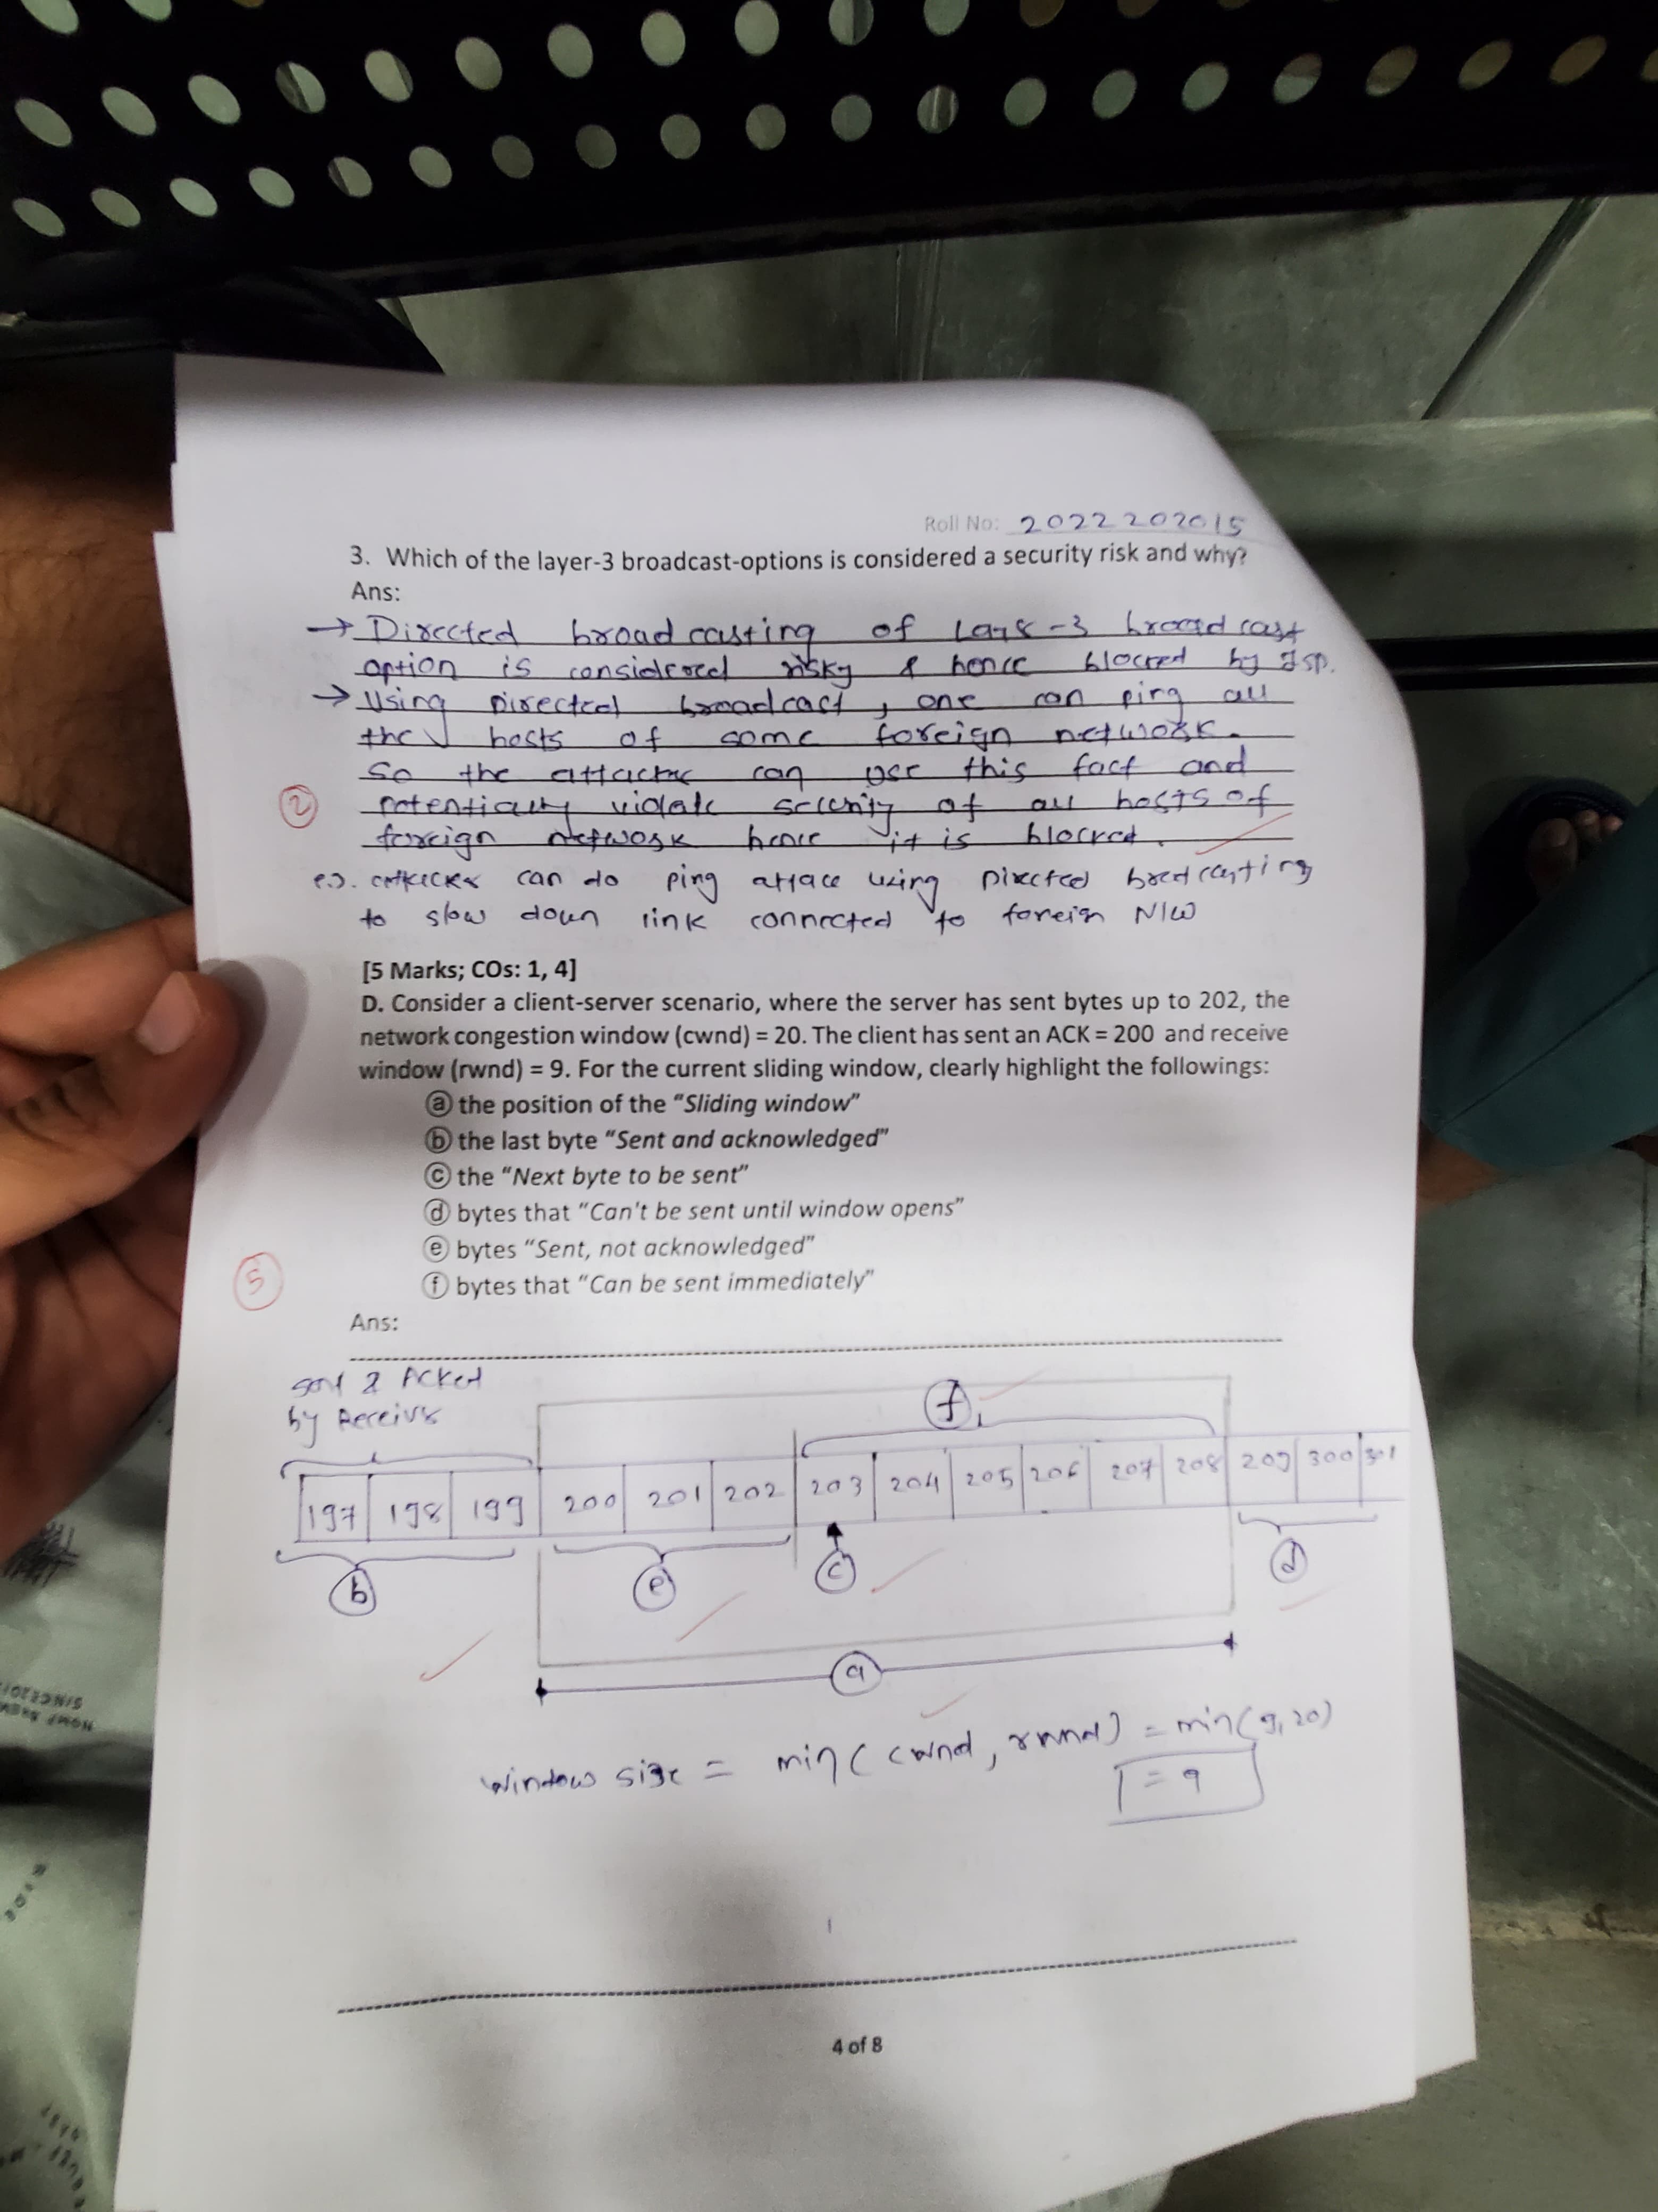 Roll No: 2022202015
3. Which of the layer-3 broadcast-options is considered a security risk and why?
Ans:
→ Directed broadcasting of Layr-3 broadcast
option is considered risky & hence blocked by Isp.
→ Using Directed broadcast, one can ping all
the hosts of some foreign network.
So the attacker can use this fact and
potentially violate security of all hosts of
foreign network hence it is blocked.
2
e.g. attacker can do ping attack using Directed broadcasting
to slow down link connected to foreign N/W
[5 Marks; COs: 1, 4]
D. Consider a client-server scenario, where the server has sent bytes up to 202, the
network congestion window (cwnd) = 20. The client has sent an ACK = 200 and receive
window (rwnd) = 9. For the current sliding window, clearly highlight the followings:
ⓐ the position of the “Sliding window”
ⓑ the last byte “Sent and acknowledged”
ⓒ the “Next byte to be sent”
ⓓ bytes that “Can't be sent until window opens”
ⓔ bytes “Sent, not acknowledged”
ⓕ bytes that “Can be sent immediately”
5
Ans:
sent & Acked
by Receivr
f
197 198 199 200 201 202 203 204 205 206 207 208 209 300 301
b e c d
a
window size = min(cwnd, rwnd) = min(9,20)
= 9
4 of 8